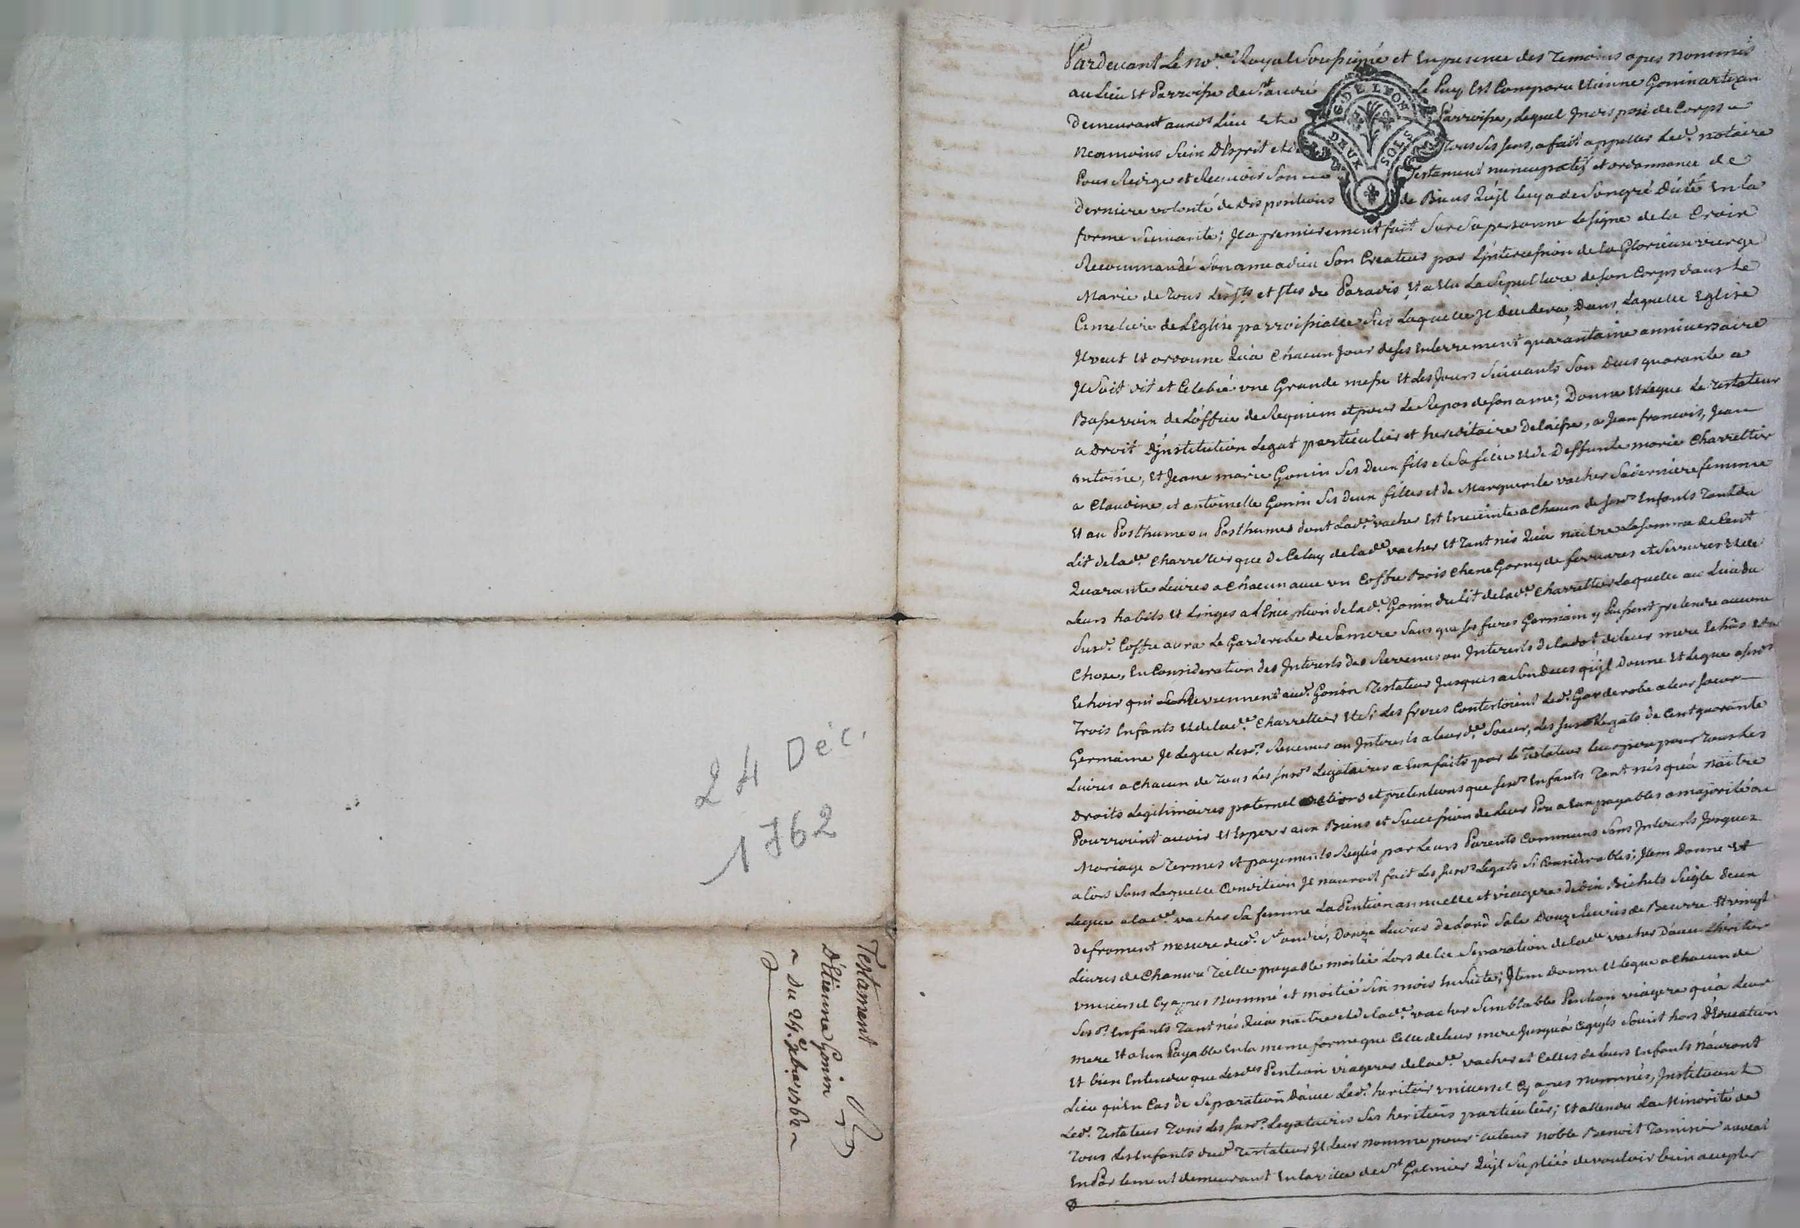 24 Déc.
1762
Testament
D'Etienne Gonin
du 24e Xbre 1762
G. DE LYON
DEUX SOLS
Pardevant Le nore Royal Soussigné et En presence des Temoins apres nommés
au Lieu et Parroisse de st andré Le Puy Est Comparu Etienne Gonin artisan
Demeurant aud Lieu et Parroisse, Lequel Indisposé de Corps
Neamoins Sain D'Esprit et de Tous Ses Sens, a fait appeller Led. notaire
Pour Rediger et Recevoir Son Testament nuncupatif et ordonnance de
Derniere volonté de dispositions de Biens Qu'jl luy a de Son gré dicté En la
forme Suivante; Jl a premierement fait Sur Sa personne Le Signe de la Croix
Recommandé Son ame a dieu Son Createur par L'jntercession de la Glorieuse vierge
Marie de Tous Les Sts et Stes du Paradis, Et a Elu La Sepulture de Son Corps dans Le
Cimetiere de L'Eglise parroissialle Sur Laquelle Jl decedera, Dans Laquelle Eglise
Jl veut Et ordonne Qu'a Chacun Jour de Ses Enterrement quarantaine anniversaire
Jl Soit dit et Celebré une Grande messe Et Les Jours Suivants Son deces quarante
Basses de L'office de Requiem et pour Le Repos de Son ame; Donne Et Legue Le Testateur
a Droit D'jnstitution Legat particulier et hereditaire Delaisse, a Jean francois, Jean
antoine, Et Jeane marie Gonin Ses Deux fils et Sa fille Et de Deffunte marie Charretier
a Claudine et antoinette Gonin Ses Deux filles et de Marguerite vacher Sa derniere femme
Et au Posthume ou Posthumes dont Lade vacher Est Enceinte a Chacun de Sesd. Enfants Tant du
Lit de lade Charretier que de Celuy de lade vacher Et Tant nés Qu'a naitre La Somme de Cent
Quarante Livres a Chacun avec un Coffre Bois Chene Garny de ferrures et Serrures Et de
Leurs habits Et Linges a L'Exception de lade Gonin du Lit de lade Charretier Laquelle au Lieu du
Susd. Coffre aura Le Garderobe de Sa mere Sans que Ses freres Germains y Puissent pretendre aucune
Chose, En Consideration des Jnterests des Revenus ou Jnterests de la dot de leur mere
Echoir qui Reviennent aud. Gonin Testateur Jusques a Son deces qu'jl Donne Et Legue a Sesd.
Trois Enfants Et de lade Charretier Et Si Les freres Contestoient Led. Garderobe a leur Soeur
Germaine Jl Legue Lesd. Revenus ou Jnterests a leurde Soeur, Les Susd. Legats de Cent quarante
Livres a Chacun de Tous Les Susd. Legataires a Eux faits par Le Testateur pour Tous Les
Droits Legitimaires paternel actions et pretentions que Sesd. Enfants Tant nés qu'a naitre
Pourroient avoir Et Esperer aux Biens et Succession de Leur Pere a Eux payables a majorité ou
Mariage a Termes et payements Reglés par Leurs Parents Communs Sans Jnterests Jusques
alors Sans Laquelle Condition Jl n'auroit fait Les Susd. Legats Si Considerables; Jtem Donne Et
Legue a lade vacher Sa femme La Pention annuelle et viagere de Six Bichets Seigle deux
de froment mesure dud. st andré, Douze Livres de Lard Salé Douze Livres de Beurre Et vingt
Livres de Chanvre Teille payable moitié Lors de la Separation de lade vacher D'avec L'heritier
universel Cy apres Nommé et moitié Six mois En Suite; Jtem Donne Et Legue a Chacun de
Sesd. Enfants Tant nés Qu'a naitre et de lade vacher Semblable Pention viagere qu'a Leur
mere Et a Eux Payable En la meme forme que Celle de leur mere Jusqu'a Ce qu'jls Soient hors D'Education
Et bien Entendu que Lesdes Pention viageres de lade vacher et Celles de Leurs Enfants N'auront
Lieu qu'En Cas de Separation D'avec Led. heritier universel Cy apres nommés, Jnstituant
Led. Testateur Tous Les Susd. Legataires Ses heritiers particuliers; Et attendu La Minorité de
Tous Les Enfants dud. Testateur Jl leur nomme pour Tuteur noble Benoit avocat
En Parlement demeurant En la ville de st Galmier Qu'jl Supplie de vouloir bien accepter